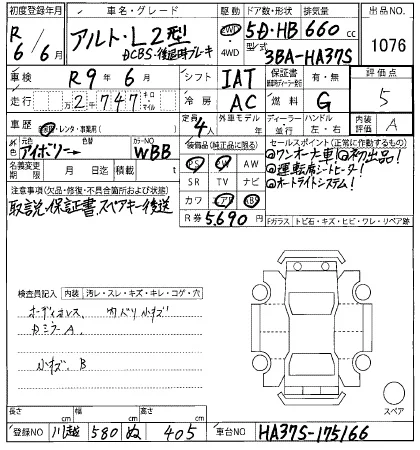 初度登録年月 車名・グレード 駆動 ドア数・形状 排気量 出品NO.
R6/6月 アルト・L2型 2WD 5D・HB 660cc 1076
DCBS・後退時ブレーキ 4WD 型式 3BA-HA37S
車検 R9年6月 シフト IAT 保証書 有・無 評価点
走行 万2千747 キロ マイル 冷房 AC 燃料 G 5
車歴 自家用・レンタ・事業用( ) 定員 4人 外車モデル 年 ディーラー 並行 ハンドル 左・右 内装 A
元色 アイボリー 色替 カラーNO. WBB 装備品(純正品に限る) セールスポイント(正常に作動するもの)
名義変更期限 月 日迄 積載 t PS PW AW @ワンオーナー車!@初出品!
SR TV ナビ @運転席シートヒーター!
注意事項(欠品・修復・不具合箇所および状態) カワ エアB ABS @オートライトシステム!
取説・保証書・スペアキー後送 R券 5,690円 Fガラス トビ石・キズ・ヒビ・ワレ・リペア跡
検査員記入 内装 汚レ・スレ・キズ・キレ・コゲ・穴
オーディオレス、内ドリ小キズ
Dミラー A
小キズ、B
スペア
長さ cm 幅 cm 高さ cm
登録NO 川越 580 ぬ 405 車台NO HA37S-175166